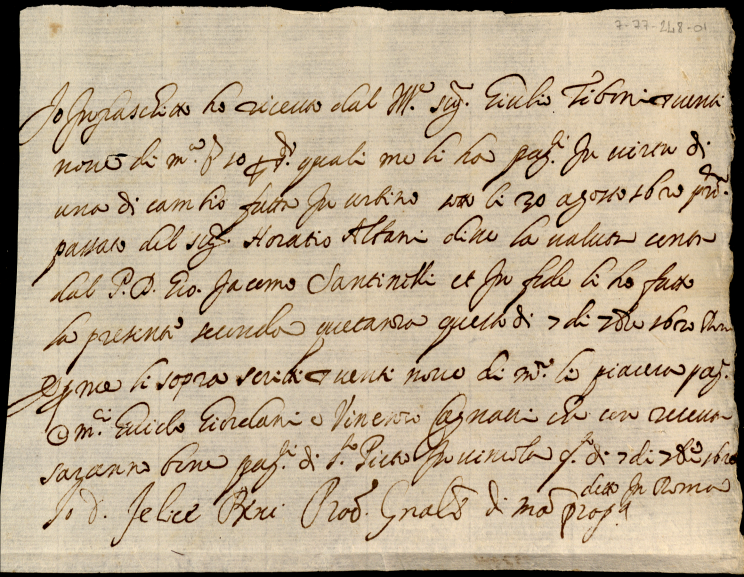 7-77-248-01
Io Infrascritto ho riceuto dal M.ro sig.r Giulio Tiboni ▽ uenti
noue di m.ta 10 quali me li ha pag.i In uirtu di
una di cambio fatta In urbino sotto li 30 agosto 1620
passato dal sig.r Horatio Albani disse la ualuta
dal P. D. Gio. Jacomo Santinelli et In fede li ho fatto
la presente seconda quetanza questo di 7 di 7bre 1620
Per me li sopra scritti ▽ uenti noue di m.ta li piacera pag.
a m.ri Guido Giordani e Vincenzo Cagnacci che con riceuta
saranno bene pag.i di S.to Pietro In uincola q.sto di 7 di 7bre 1620
Io D. Felice Proc. Gnale di mano prop.a
detto In Roma